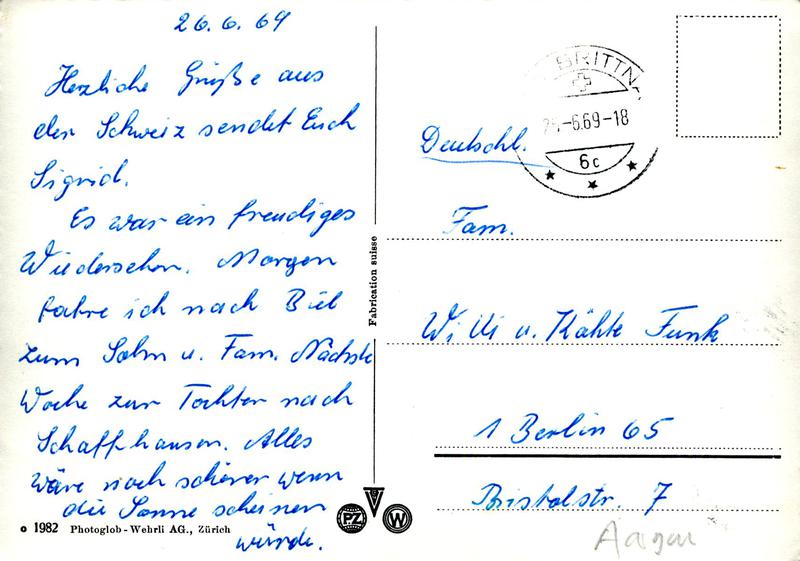 26.6.69
Herzliche Grüße aus
der Schweiz sendet Euch
Sigrid.
Es war ein freudiges
Wiedersehen. Morgen
fahre ich nach Biel
zum Sohn u. Fam. Nächste
Woche zur Tochter nach
Schaffhausen. Alles
wäre noch schöner wenn
die Sonne scheinen
würde.
1982 Photoglob-Wehrli AG., Zürich
Fabrication suisse
PZ
W
BRITTN
-6.69-18
6c
Deutschl.
Fam.
Willi u. Käthe Funk
1 Berlin 65
Bristolstr. 7